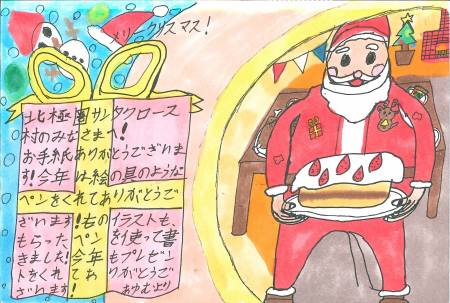 メリークリスマス!
北極圏サンタクロース
村のみなさまへ!
お手紙ありがとうございま
す!今年は絵の具のような
ペンをくれてありがとうご
ざいます!このイラストも、
もらったペンを使って書
きました!今年もプレゼン
トをくれてありがとうご
ざいます! あゆむより